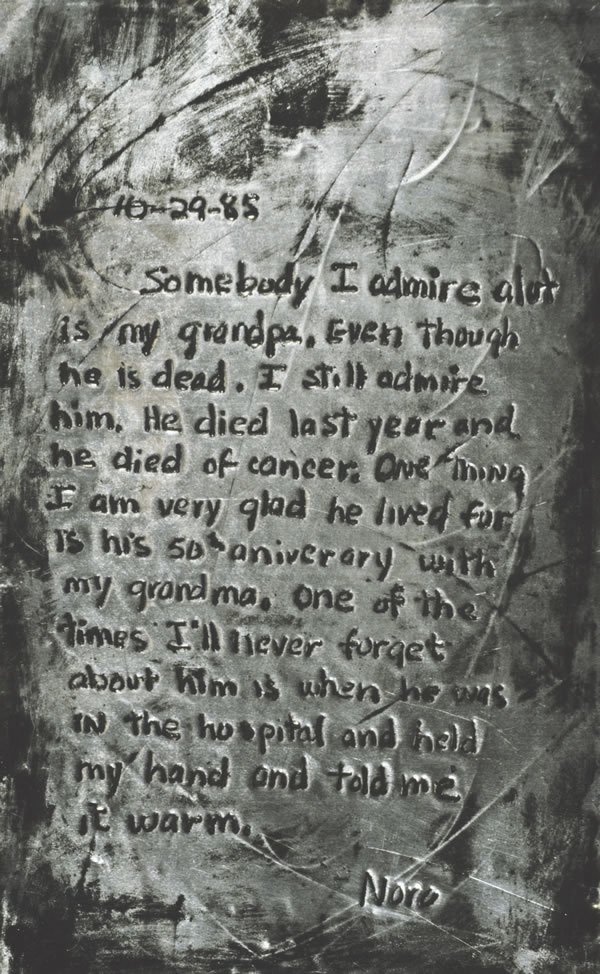 10-29-85
Somebody I admire alot
is my grandpa. Even though
he is dead. I still admire
him. He died last year and
he died of cancer. One thing
I am very glad he lived for
is his 50th aniverary with
my grandma. One of the
times I'll never forget
about him is when he was
in the hospital and held
my hand and told me
it warm.
Nora